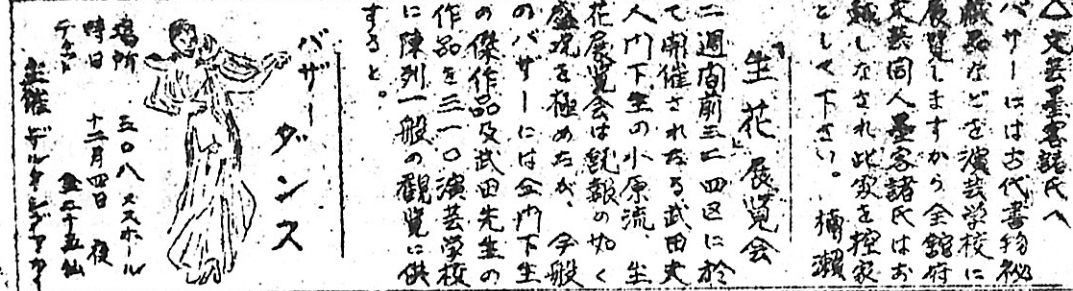 △文芸墨客諸氏へ
バザーには古代書物秘
蔵品などを演芸学校に
展覧しますから全館府
文芸同人墨客諸氏はお
越しなされ此家を控家
として下さい。 楠瀬
「生花」展覧会
二週間前三二四区に於
て開催されたる武田夫
人門下生の小原流、生
花展覧会は既報の如く
盛況を極めたが、今般
のバザーには全門下生
の傑作品及武田先生の
作品を三一〇演芸学校
に陳列一般の観覧に供
すると。
バザーダンス
場所 五〇八メスホール
時日 十二月四日 夜
チケット 金二十五仙
主催 デルタシグマ